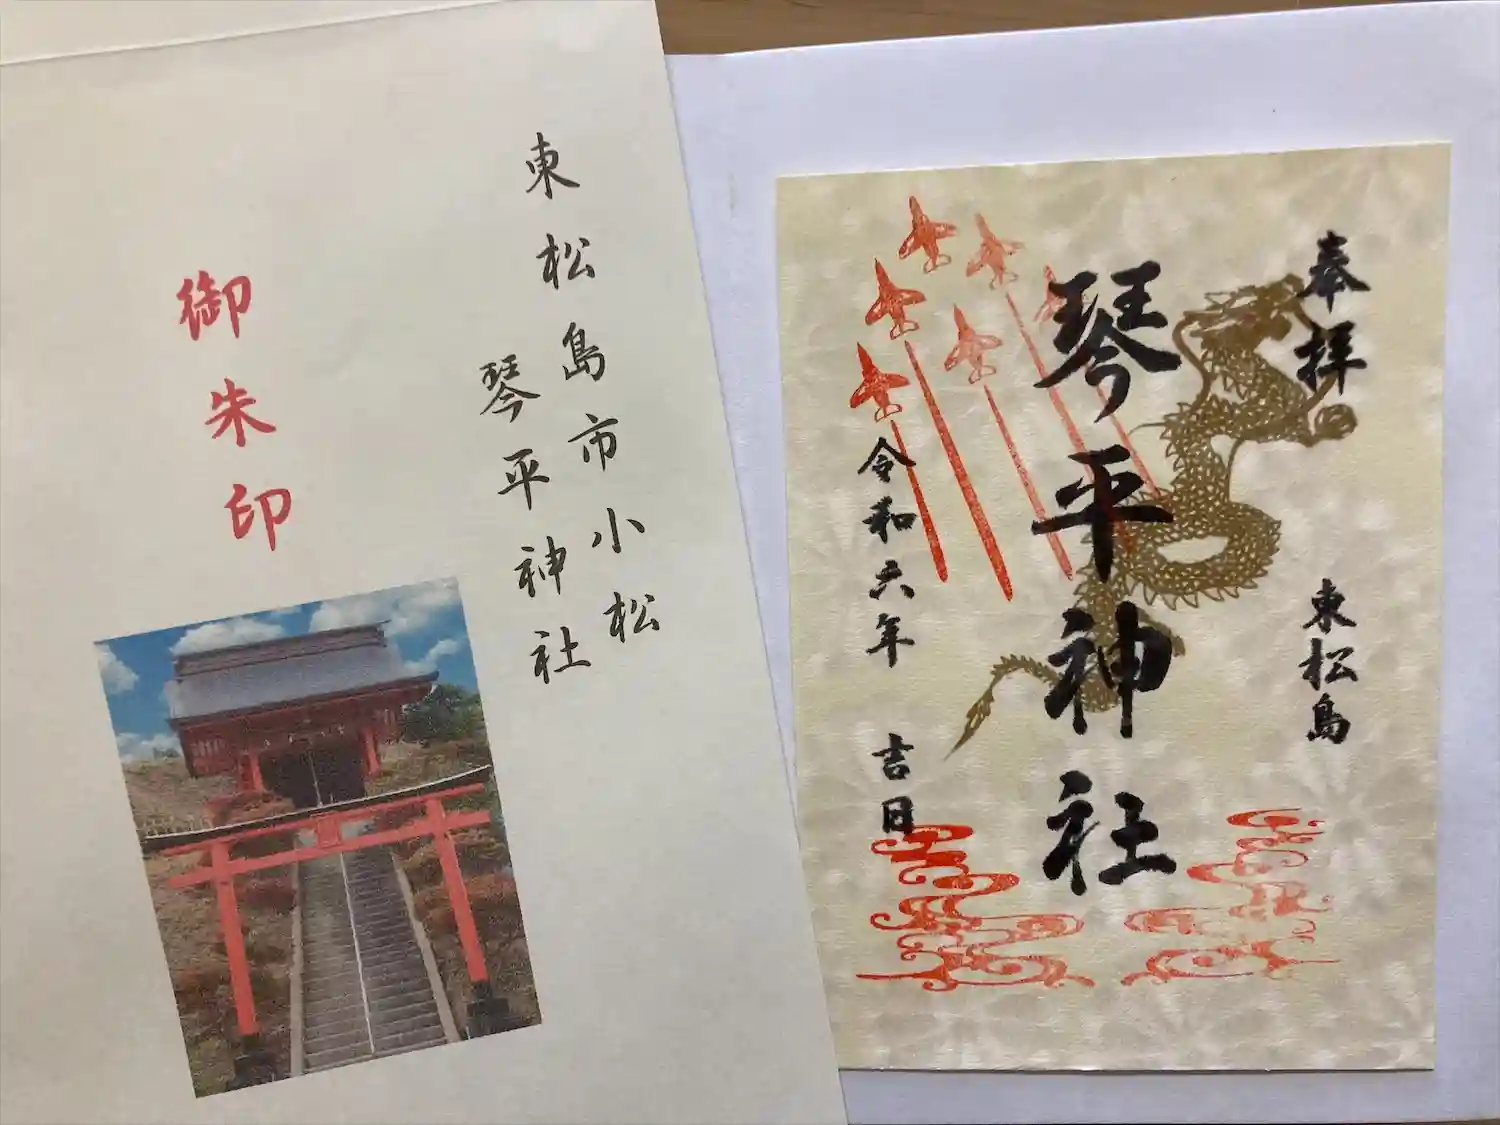 東松島市小松
琴平神社
御朱印
奉拝
東松島
琴平神社
令和六年 吉日